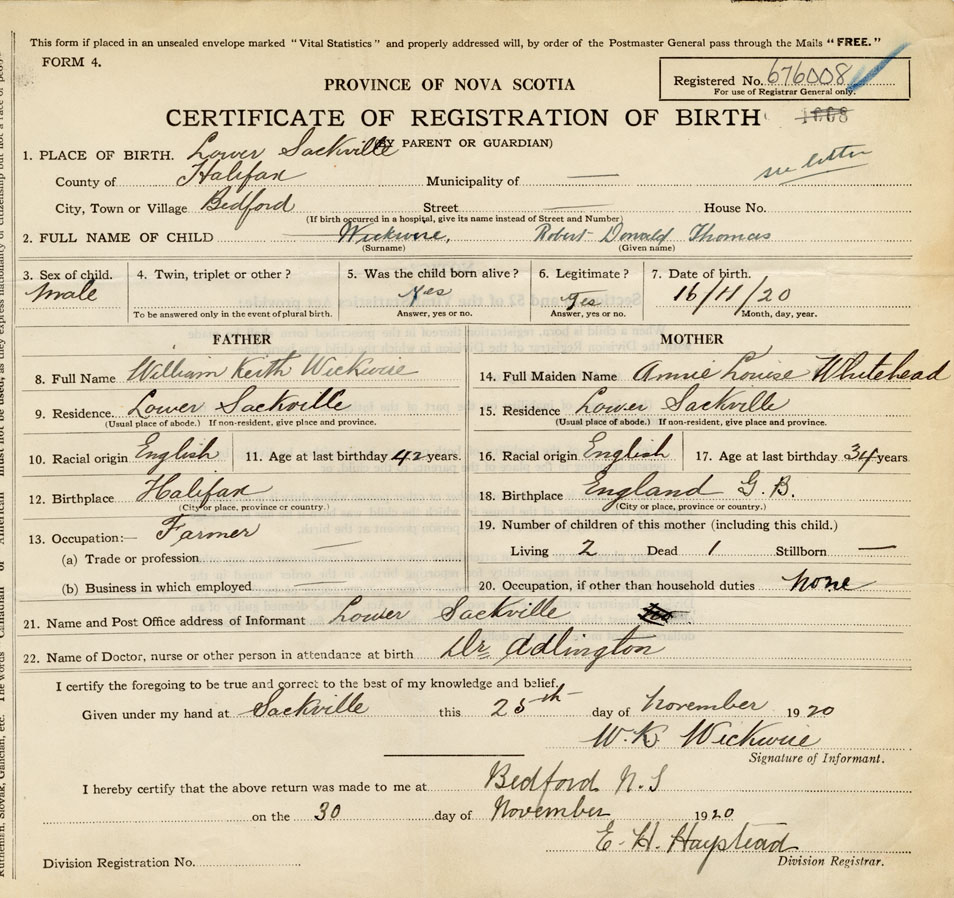 This form if placed in an unsealed envelope marked "Vital Statistics" and properly addressed will, by order of the Postmaster General pass through the Mails "FREE."
FORM 4.
Registered No. 676008
For use of Registrar General only.
PROVINCE OF NOVA SCOTIA
CERTIFICATE OF REGISTRATION OF BIRTH 1608
(BY PARENT OR GUARDIAN)
1. PLACE OF BIRTH. Lower Sackville
see letter
County of Halifax Municipality of —
City, Town or Village Bedford Street — House No.
(If birth occurred in a hospital, give its name instead of Street and Number)
2. FULL NAME OF CHILD Wickwire, Robert Donald Thomas
(Surname) (Given name)
3. Sex of child. 4. Twin, triplet or other? 5. Was the child born alive? 6. Legitimate? 7. Date of birth.
male Yes Yes 16/11/20
To be answered only in the event of plural birth. Answer, yes or no. Answer, yes or no. Month, day, year.
FATHER
8. Full Name William Keith Wickwire
9. Residence. Lower Sackville
(Usual place of abode.) If non-resident, give place and province.
10. Racial origin English 11. Age at last birthday 42 years.
12. Birthplace Halifax
(City or place, province or country.)
13. Occupation:— Farmer
(a) Trade or profession —
(b) Business in which employed
MOTHER
14. Full Maiden Name Annie Louise Whitehead
15. Residence Lower Sackville
(Usual place of abode.) If non-resident, give place and province.
16. Racial origin English 17. Age at last birthday 34 years
18. Birthplace England G.B.
(City or place, province or country.)
19. Number of children of this mother (including this child.)
Living 2 Dead 1 Stillborn —
20. Occupation, if other than household duties none
21. Name and Post Office address of Informant Lower Sackville
22. Name of Doctor, nurse or other person in attendance at birth Dr Adlington
I certify the foregoing to be true and correct to the best of my knowledge and belief.
Given under my hand at Sackville this 25th day of November 1920
W. K. Wickwire
Signature of Informant.
I hereby certify that the above return was made to me at Bedford N.S
on the 30 day of November 1920
E. H. Haystead
Division Registrar.
Division Registration No.